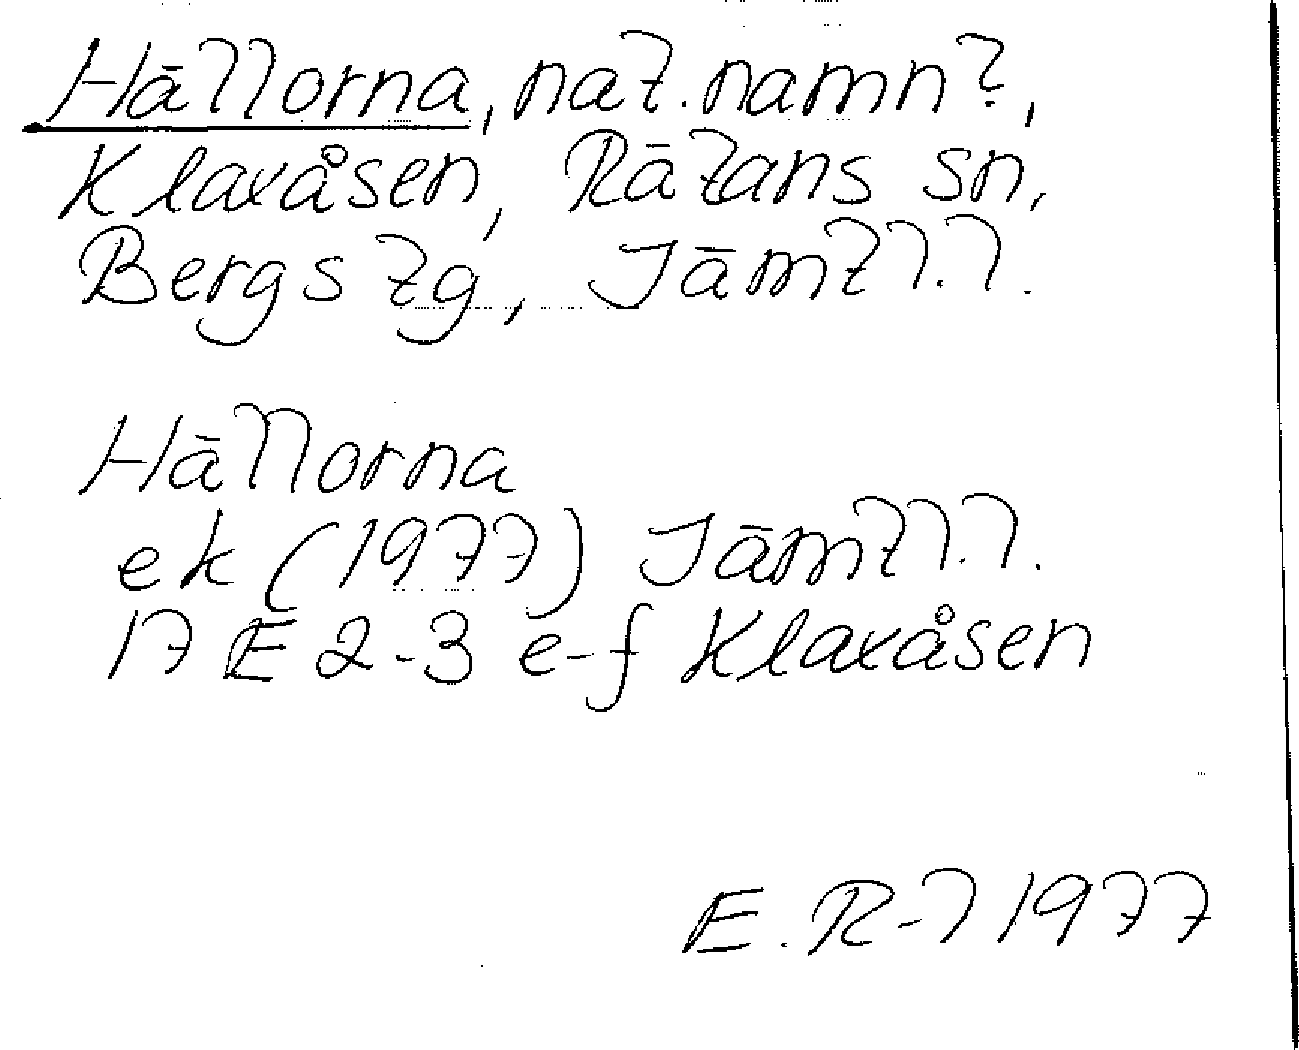 Hällorna, nat. namn?,
Klaxåsen, Rätans sn,
Bergs tg, Jämtl. l.
Hällorna
ek (1977) Jämtl. l.
17 E 2-3 e-f Klaxåsen
E. R-l 1977